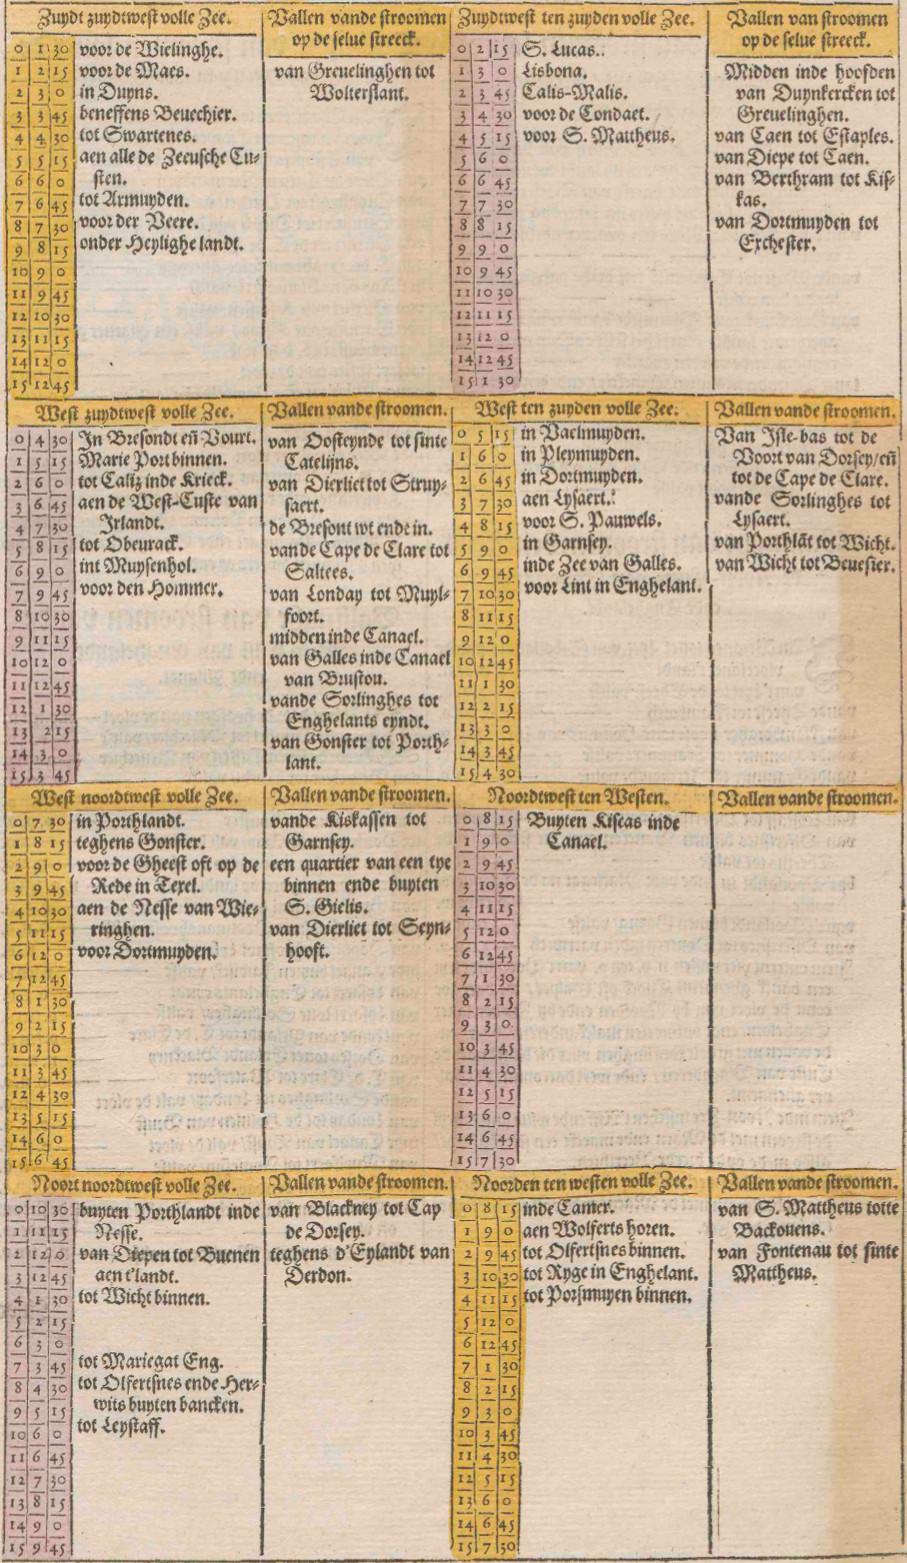 Zuydt zuydtwest volle Zee.
Vallen vande stroomen
op de selue streeck.
0 1 30 voor de Wielinghe.
1 2 15 voor de Maes.
2 3 0 in Duyns.
3 3 45 beneffens Beuechier.
4 4 30 tot Swartenes.
5 5 15 aen alle de Zeeusche Cu-
sten.
6 6 0
7 6 45 tot Armuyden.
8 7 30 voor der Veere.
9 8 15 onder Heylighe landt.
10 9 0
11 9 45
12 10 30
13 11 15
14 12 0
15 12 45
van Greuelinghen tot
Wolterslant.
Zuydtwest ten zuyden volle Zee.
Vallen van stroomen
op de selue streeck.
0 2 15 S. Lucas.
1 3 0 Lisbona.
2 3 45 Calis-Malis.
3 4 30 voor de Condaet.
4 5 15 voor S. Mattheus.
5 6 0
6 6 45
7 7 30
8 8 15
9 9 0
10 9 45
11 10 30
12 11 15
13 12 0
14 12 45
15 1 30
Midden inde hoofden
van Duynkercken tot
Greuelinghen.
van Caen tot Estaples.
van Diepe tot Caen.
van Berthram tot Kis-
kas.
van Dortmuyden tot
Exchester.
West zuydtwest volle Zee.
Vallen vande stroomen.
0 4 30 In Bresondt eñ Vourt.
1 5 15 Marie Port binnen.
2 6 0 tot Caliz inde Krieck.
3 6 45 aen de West-Custe van
Irlandt.
4 7 30
5 8 15 tot Obeurack.
6 9 0 int Muysenhol.
7 9 45 voor den Hommer.
8 10 30
9 11 15
10 12 0
11 12 45
12 1 30
13 2 15
14 3 0
15 3 45
van Oosteynde tot sinte
Catelijns.
van Dierliet tot Struy-
saert.
de Bresont wt ende in.
vande Cape de Clare tot
Saltees.
van Londay tot Muyl-
foort.
midden inde Canael.
van Galles inde Canael
van Brustou.
vande Sorlinghes tot
Enghelants eyndt.
van Gonster tot Porth-
lant.
West ten zuyden volle Zee.
Vallen vande stroomen.
0 5 15 in Vaelmuyden.
1 6 0 in Pleymuyden.
2 6 45 in Dortmuyden.
3 7 30 aen Lysaert.
4 8 15 voor S. Pauwels.
5 9 0 in Garnsey.
6 9 45 inde Zee van Galles.
7 10 30 voor Lint in Enghelant.
8 11 15
9 12 0
10 12 45
11 1 30
12 2 15
13 3 0
14 3 45
15 4 30
Van Isle-bas tot de
Voort van Dorsey/eñ
tot de Cape de Clare.
vande Sorlinghes tot
Lysaert.
van Porthlāt tot Wicht.
van Wicht tot Beuesier.
West noordtwest volle Zee.
Vallen vande stroomen.
0 7 30 in Porthlandt.
1 8 15 teghens Gonster.
2 9 0 voor de Gheest oft op de
3 9 45 Rede in Texel.
4 10 30 aen de Nesse van Wie-
5 11 15 ringhen.
6 12 0 voor Dortmuyden.
7 12 45
8 1 30
9 2 15
10 3 0
11 3 45
12 4 30
13 5 15
14 6 0
15 6 45
vande Kiskassen tot
Garnsey.
een quartier van een tye
binnen ende buyten
S. Gielis.
van Dierliet tot Seyn-
hooft.
Noordtwest ten Westen.
Vallen vande stroomen.
0 8 15 Buyten Kiscas inde
1 9 0 Canael.
2 9 45
3 10 30
4 11 15
5 12 0
6 12 45
7 1 30
8 2 15
9 3 0
10 3 45
11 4 30
12 5 15
13 6 0
14 6 45
15 7 30
Noort noordtwest volle Zee.
Vallen vande stroomen.
0 10 30 buyten Porthlandt inde
1 11 15 Nesse.
2 12 0 van Diepen tot Buenen
3 12 45 aen t'landt.
4 1 30 tot Wicht binnen.
5 2 15
6 3 0
7 3 45 tot Mariegat Eng.
8 4 30 tot Olfertsnes ende Her-
9 5 15 wits buyten bancken.
10 6 0 tot Leystaff.
11 6 45
12 7 30
13 8 15
14 9 0
15 9 45
van Blackney tot Cap
de Dorsey.
teghens d'Eylandt van
Derdon.
Noorden ten westen volle Zee.
Vallen vande stroomen.
0 8 15 inde Camer.
1 9 0 aen Wolferts horen.
2 9 45 tot Olfertsnes binnen.
3 10 30 tot Ryge in Enghelant.
4 11 15 tot Porsmuyen binnen.
5 12 0
6 12 45
7 1 30
8 2 15
9 3 0
10 3 45
11 4 30
12 5 15
13 6 0
14 6 45
15 7 30
van S. Mattheus totte
Backouens.
van Fontenau tot sinte
Mattheus.